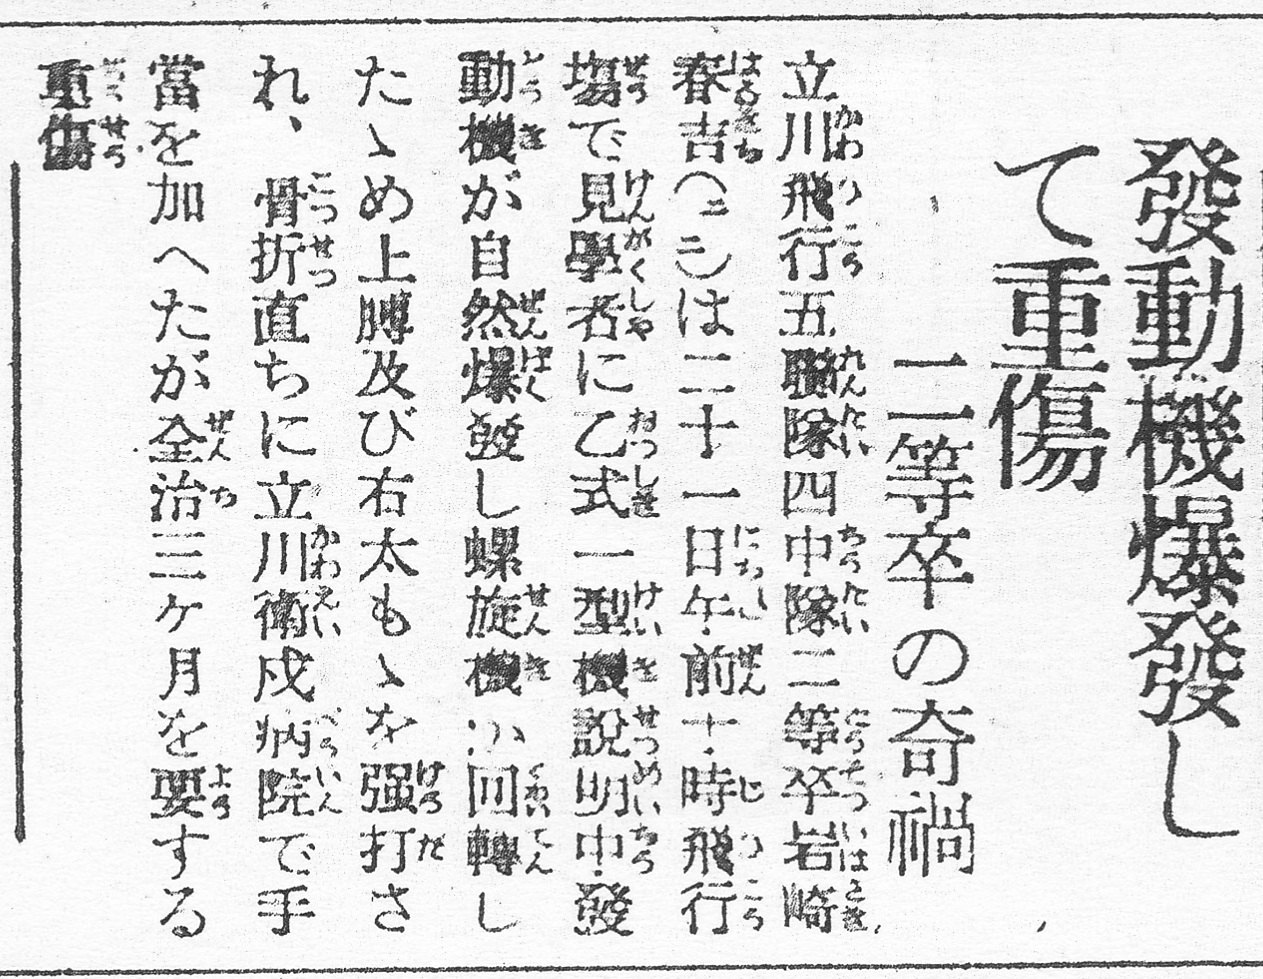 發動機爆發し
て重傷
二等卒の奇禍
立川飛行五聯隊四中隊二等卒岩崎
春吉(二三)は二十一日午前十時飛行
塲で見學者に乙式一型機説明中發
動機が自然爆發し螺旋機が回轉し
たゝめ上膊及び右太もゝを强打さ
れ、骨折直ちに立川衛戍病院で手
當を加へたが全治三ケ月を要する
重傷